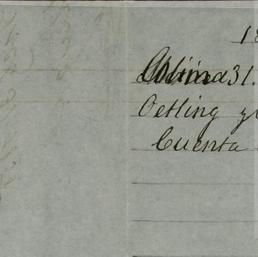 18
Colima 31.
Oetling y
Cuenta